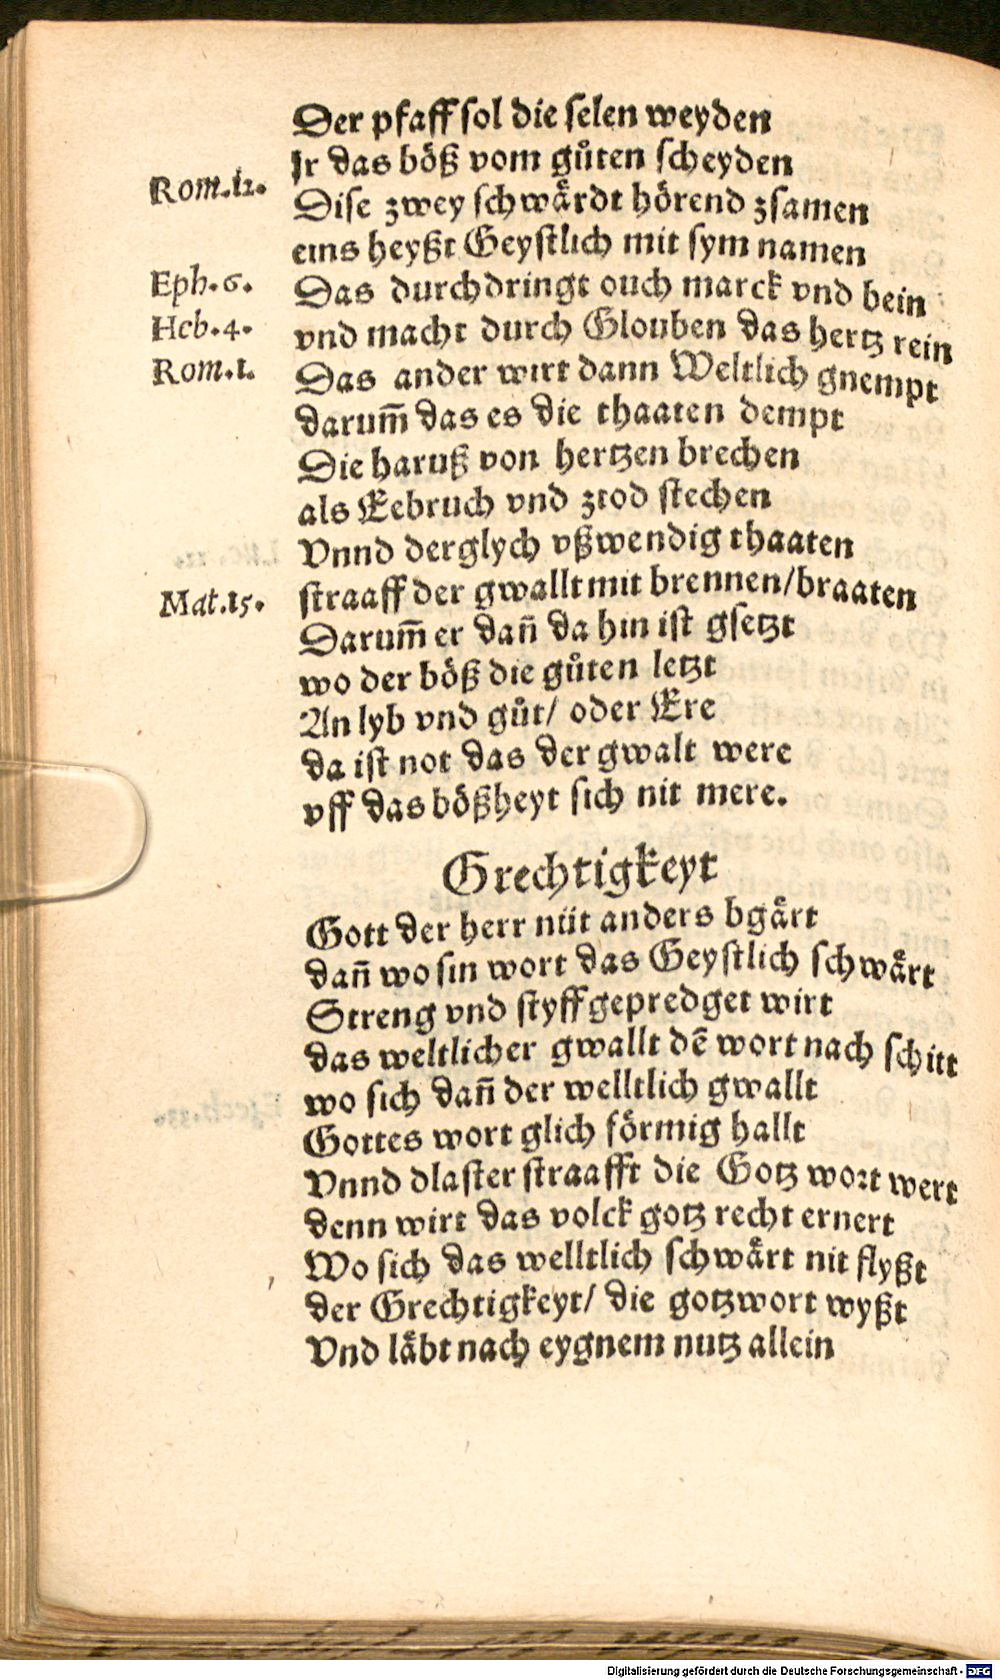 Der pfaff sol die selen weyden
Ir das böß vom gůten scheyden
Rom.12.
Dise zwey schwärdt hörend zsamen
eins heyßt Geystlich mit sym namen
Eph.6.
Das durchdringt ouch marck vnd bein
Heb.4.
vnd macht durch Glouben das hertz rein
Rom.1.
Das ander wirt dann Weltlich gnempt
darum̄ das es die thaaten dempt
Die haruß von hertzen brechen
als Eebruch vnd ztod stechen
Vnnd derglych vßwendig thaaten
Mat.15.
straaff der gwallt mit brennen/braaten
Darum̄ er dan̄ da hin ist gsetzt
wo der böß die gůten letzt
An lyb vnd gůt/ oder Ere
da ist not das der gwalt were
vff das bößheyt sich nit mere.
Grechtigkeyt
Gott der herr nüt anders bgärt
dan̄ wo sin wort das Geystlich schwärt
Streng vnd styff gepredget wirt
das weltlicher gwallt dē wort nach schitt
wo sich dan̄ der welltlich gwallt
Gottes wort glich förmig hallt
Vnnd dlaster straafft die Gotz wort wert
denn wirt das volck gotz recht ernert
Wo sich das welltlich schwärt nit flyßt
der Grechtigkeyt/ die gotzwort wyßt
Vnd läbt nach eygnem nutz allein
Digitalisierung gefördert durch die Deutsche Forschungsgemeinschaft - DFG